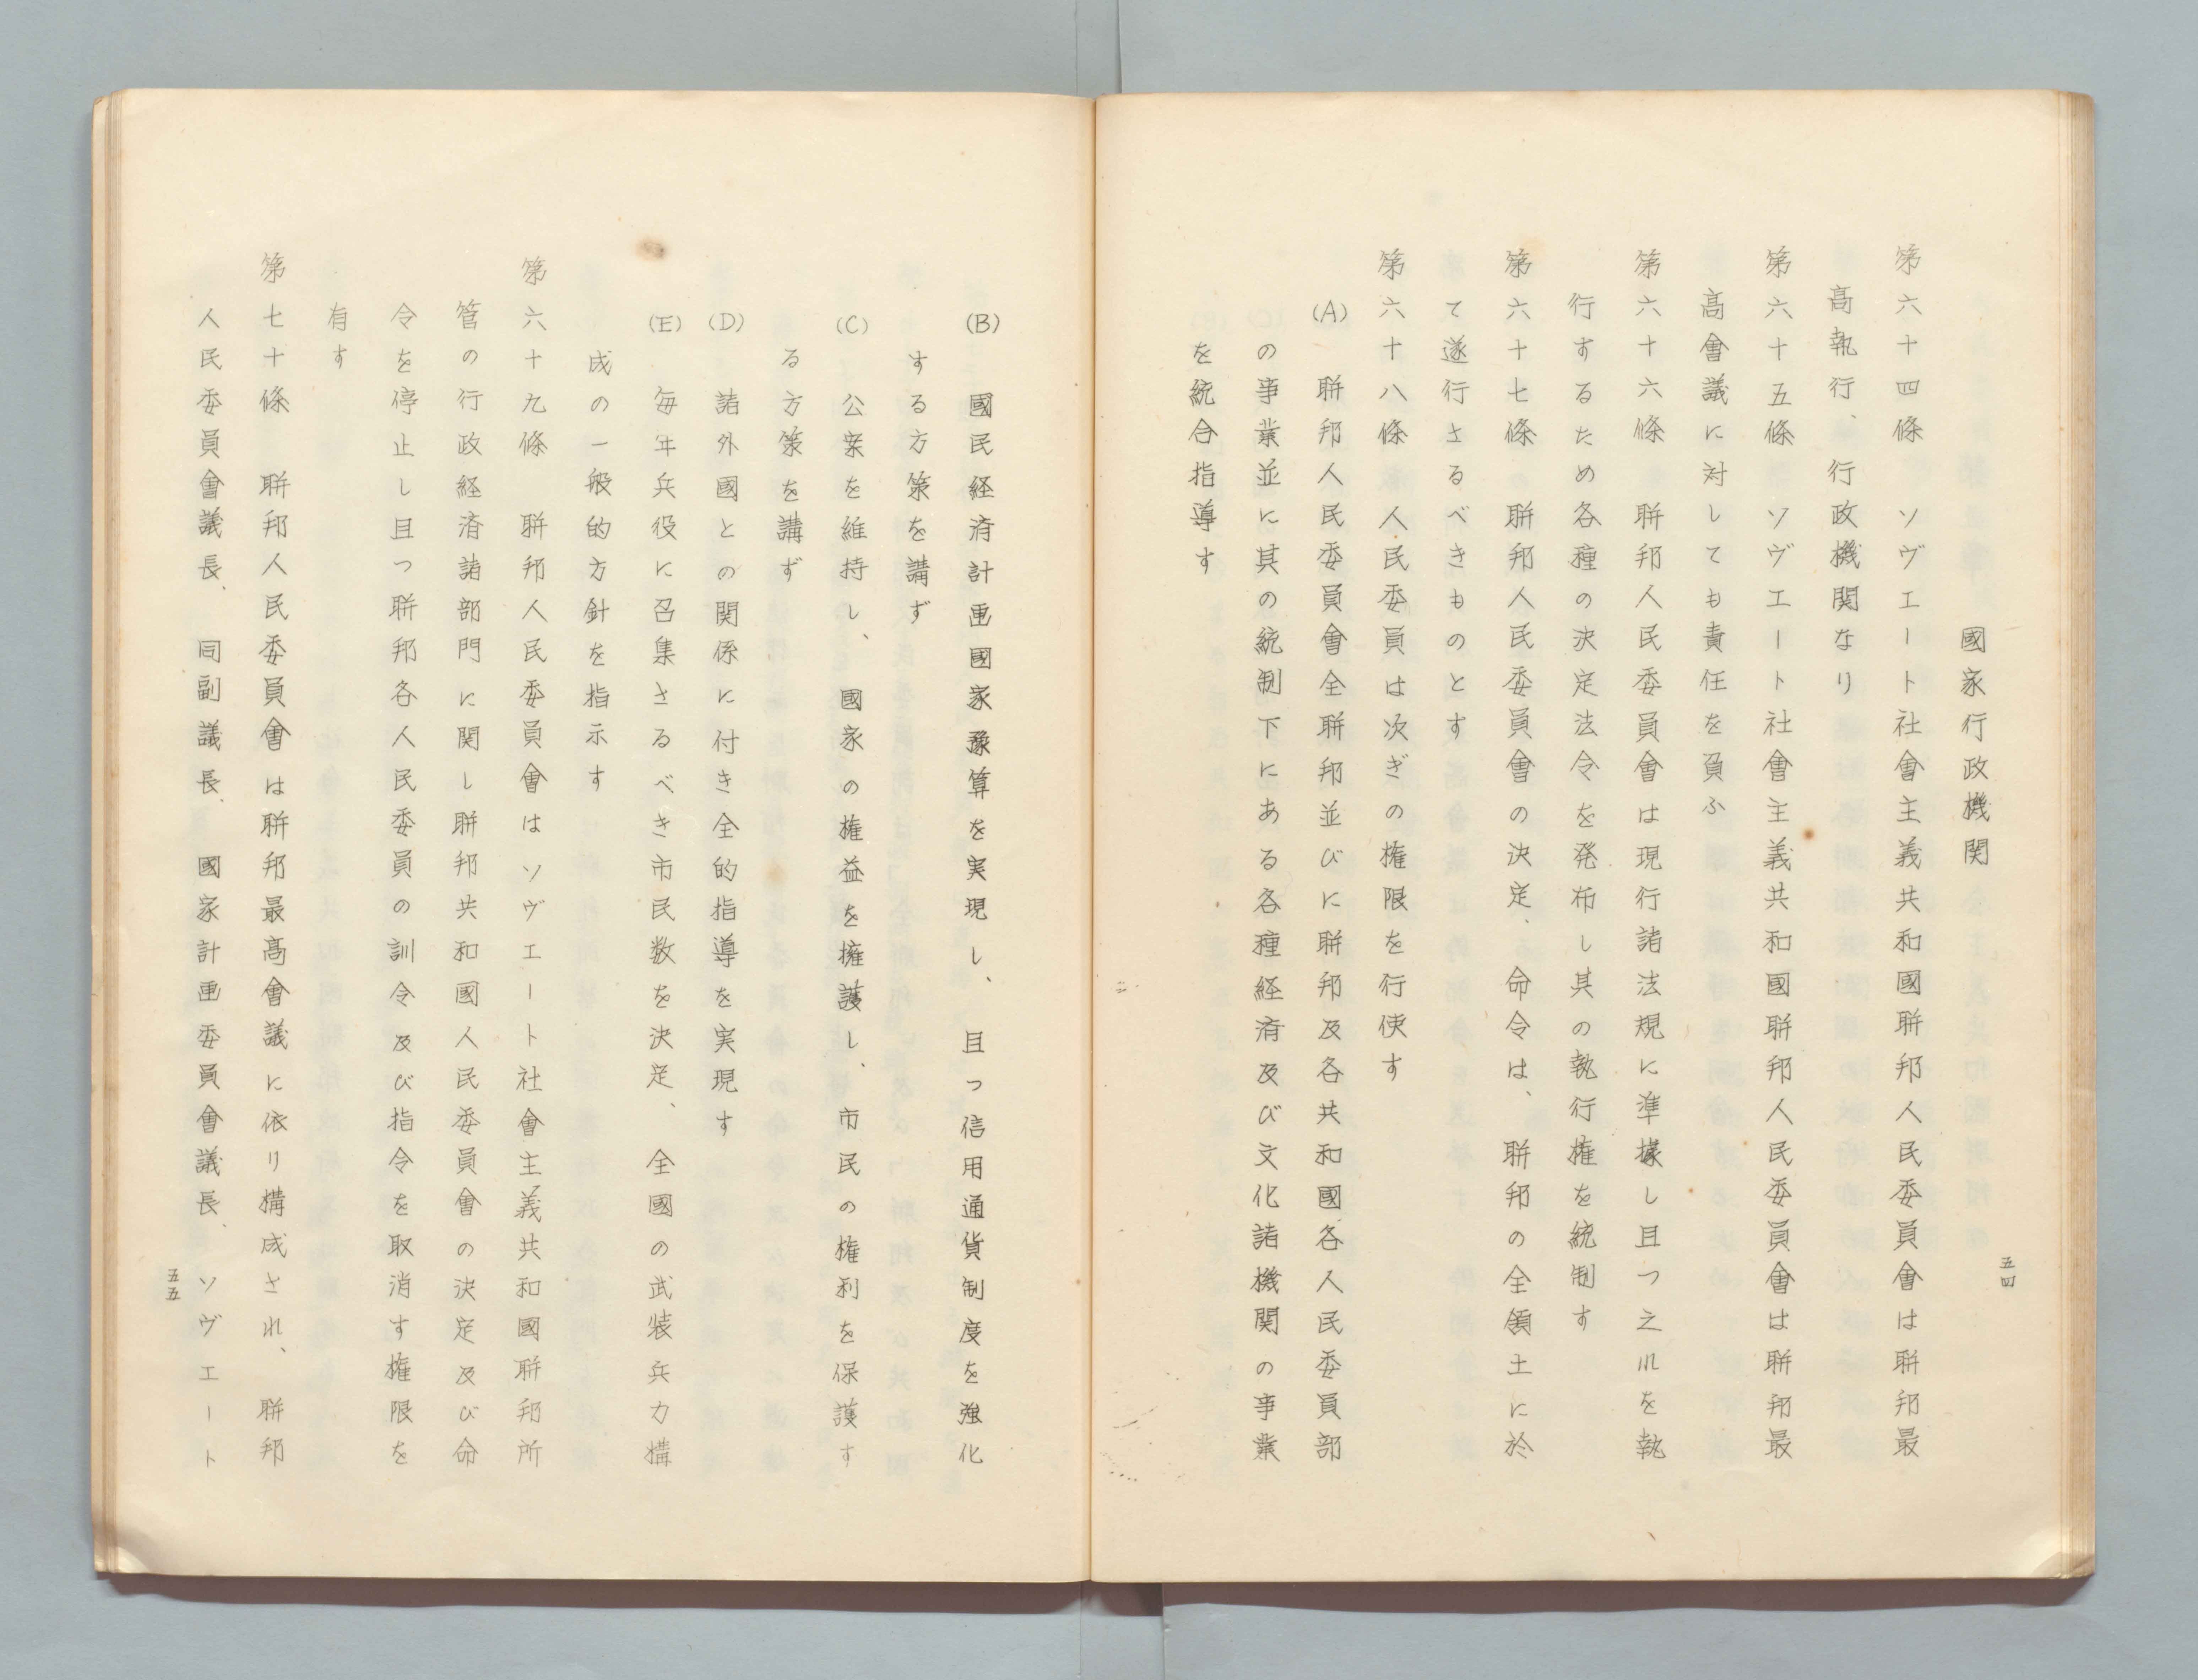 五四
國家行政機関
第六十四條　ソヴエート社會主義共和國聯邦人民委員會は聯邦最
高執行、行政機関なり
第六十五條　ソヴエート社會主義共和國聯邦人民委員會は聯邦最
高會議に対しても責任を負ふ
第六十六條　聯邦人民委員會は現行諸法規に準據し且つ之ルを執
行するため各種の決定法令を発布し其の執行権を統制す
第六十七條　聯邦人民委員會の決定、命令は、聯邦の全領土に於
て遂行さるべきものとす
第六十八條　人民委員は次ぎの権限を行使す
(A)　聯邦人民委員會全聯邦並びに聯邦及各共和國各人民委員部
の事業並に其の統制下にある各種経済及び文化諸機関の事業
を統合指導す
(B)　國民経済計画國家豫算を実現し、且つ信用通貨制度を強化
する方策を講ず
(C)　公案を維持し、國家の権益を擁護し、市民の権利を保護す
る方策を講ず
(D)　諸外國との関係に付き全的指導を実現す
(E)　毎年兵役に召集さるべき市民数を決定、全國の武装兵力構
成の一般的方針を指示す
第六十九條　聯邦人民委員會はソヴエート社會主義共和國聯邦所
管の行政経済諸部門に関し聯邦共和國人民委員會の決定及び命
令を停止し且つ聯邦各人民委員の訓令及び指令を取消す権限を
有す
第七十條　聯邦人民委員會は聯邦最高會議に依り構成され、聯邦
人民委員會議長、同副議長、國家計画委員會議長、ソヴエート
五五